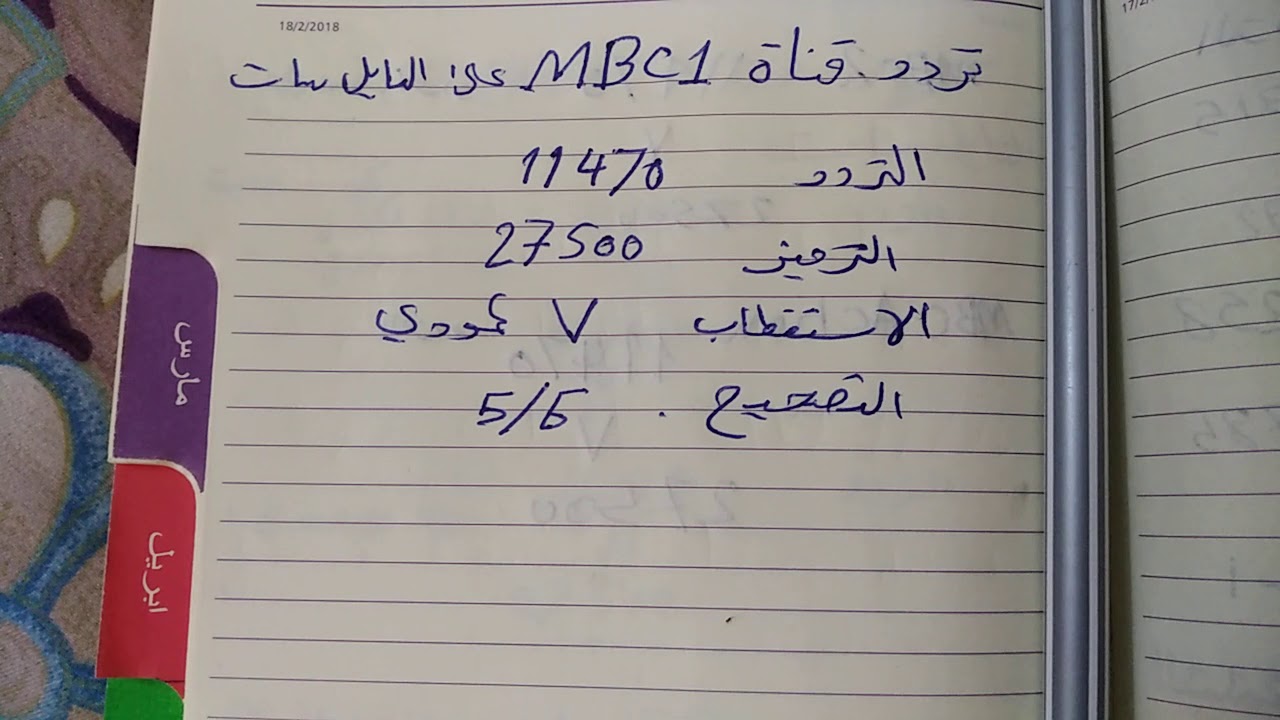 18/2/2018
تردد قناة MBC1 على النايل سات
التردد 11470
الترميز 27500
الاستقطاب V عمودي
التصحيح 5/6
مارس
ابريل